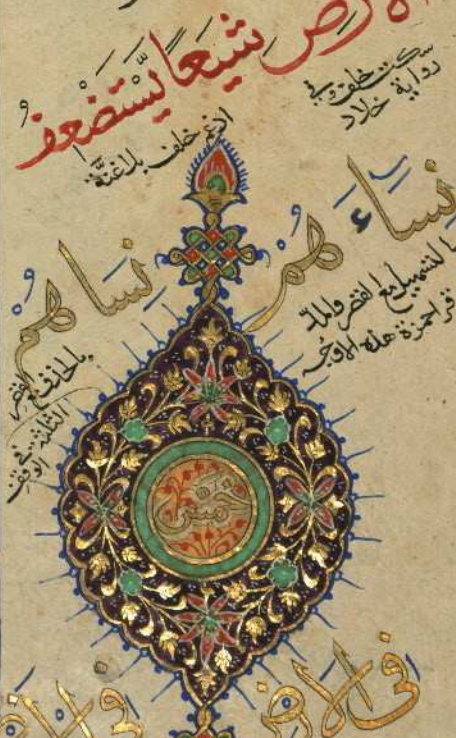 الارض شيعًا يَستَضعِفُ
سكت خلف وفي
رواية خلاد
ادغم خلف بلا غنّة
نساءَهُم
نساهُم
بالتسهيل مع القصر والمدّ
قرا حمزة هذه الاوجه
بالحذف مع القصر
الثلاثة في
الوقف
خمس
في الارض
في الارض